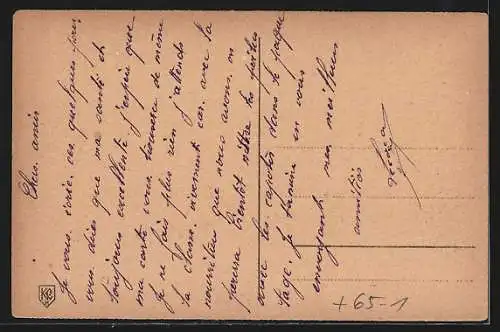 Chers amis
Je vous écrie ces quelques pour
vous dires que ma santé et
toujours excellente j'espère que
ma carte vous trouvera de même
je ne fais plus rien j'attends
la classe vivement car avec la
nourriture que nous avons on
pourra bientôt mètre les poches
avec les capotes dans le
tage. je termine en vous
envoyant mes meilleurs
amitiés
+65-1